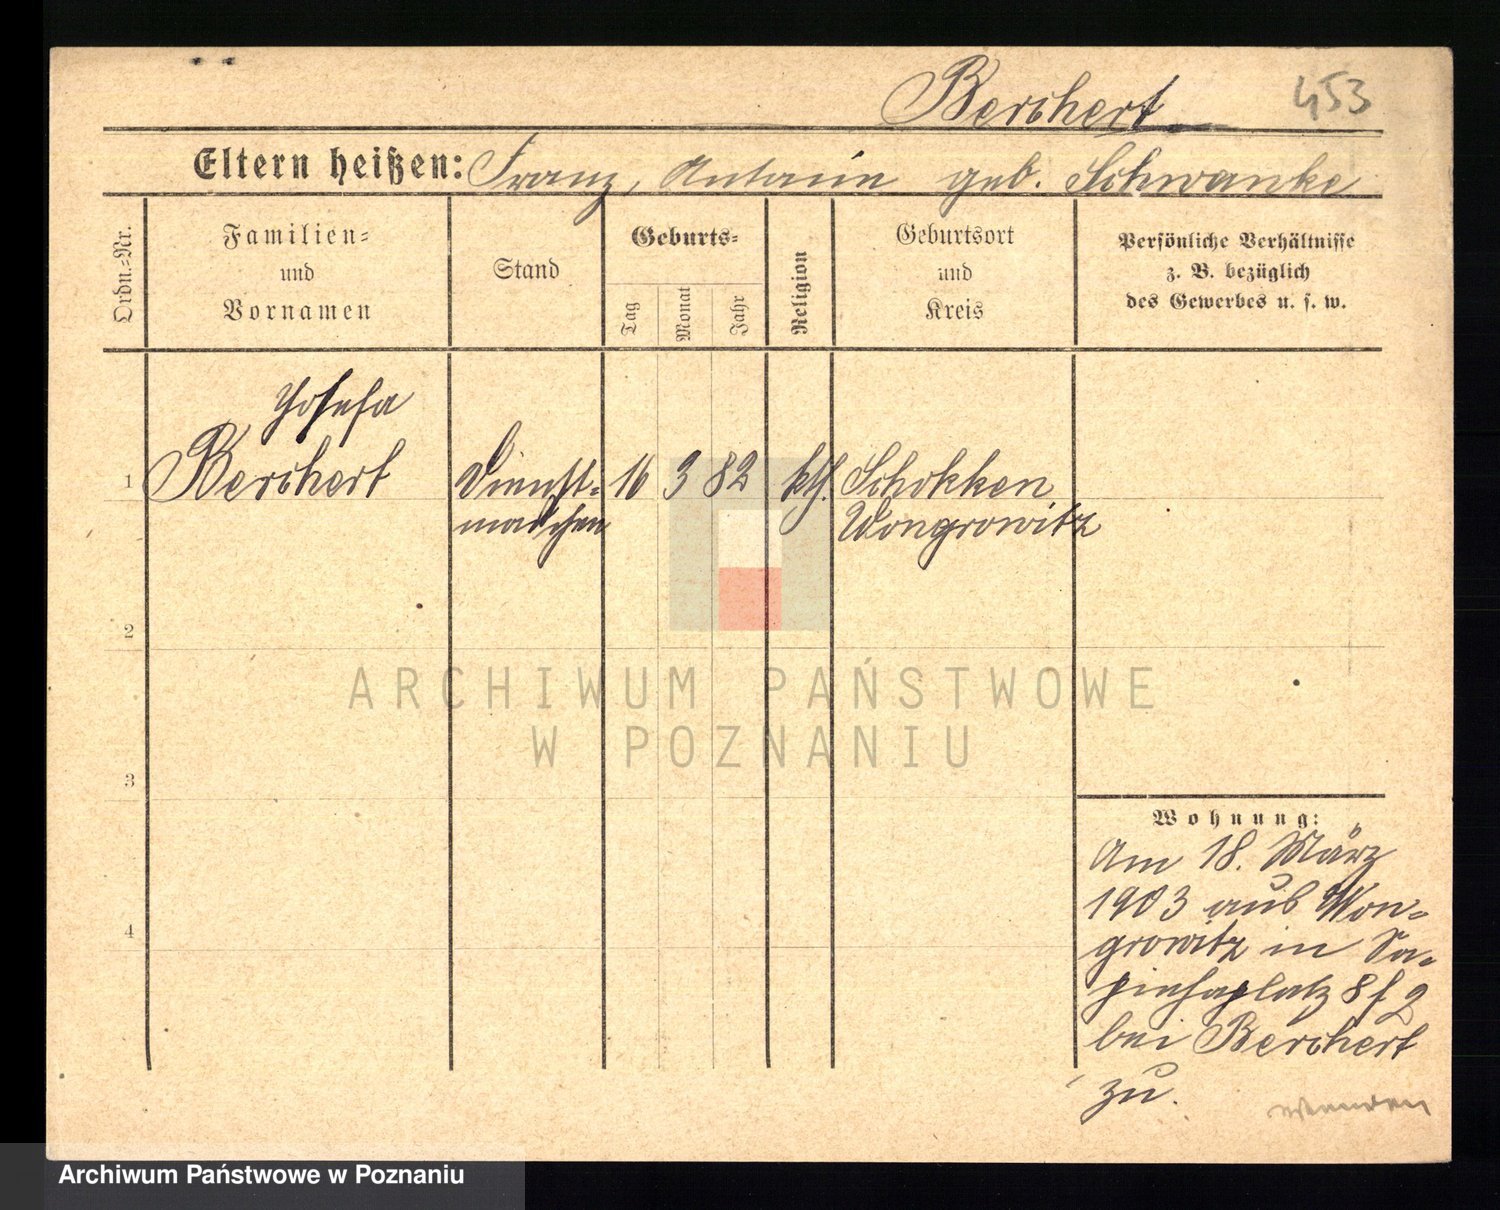 Berchert 453
Eltern heißen: Franz, Antonie geb. Schwanke
Ordn.=Nr.
Familien=
und
Vornamen
Stand
Geburts=
Tag
Monat
Jahr
Religion
Geburtsort
und
Kreis
Persönliche Verhältnisse
z. B. bezüglich
des Gewerbes u. s. w.
Josefa
1 Berchert Dienst= 16 3 82 kth. Schokken
mädchen Wongrowitz
2
3
4
Wohnung:
Am 18. März
1903 aus Won=
growitz in Sa=
piehaplatz 8 f 2
bei Berchert
zu.
wenden
ARCHIWUM PAŃSTWOWE
W POZNANIU
Archiwum Państwowe w Poznaniu